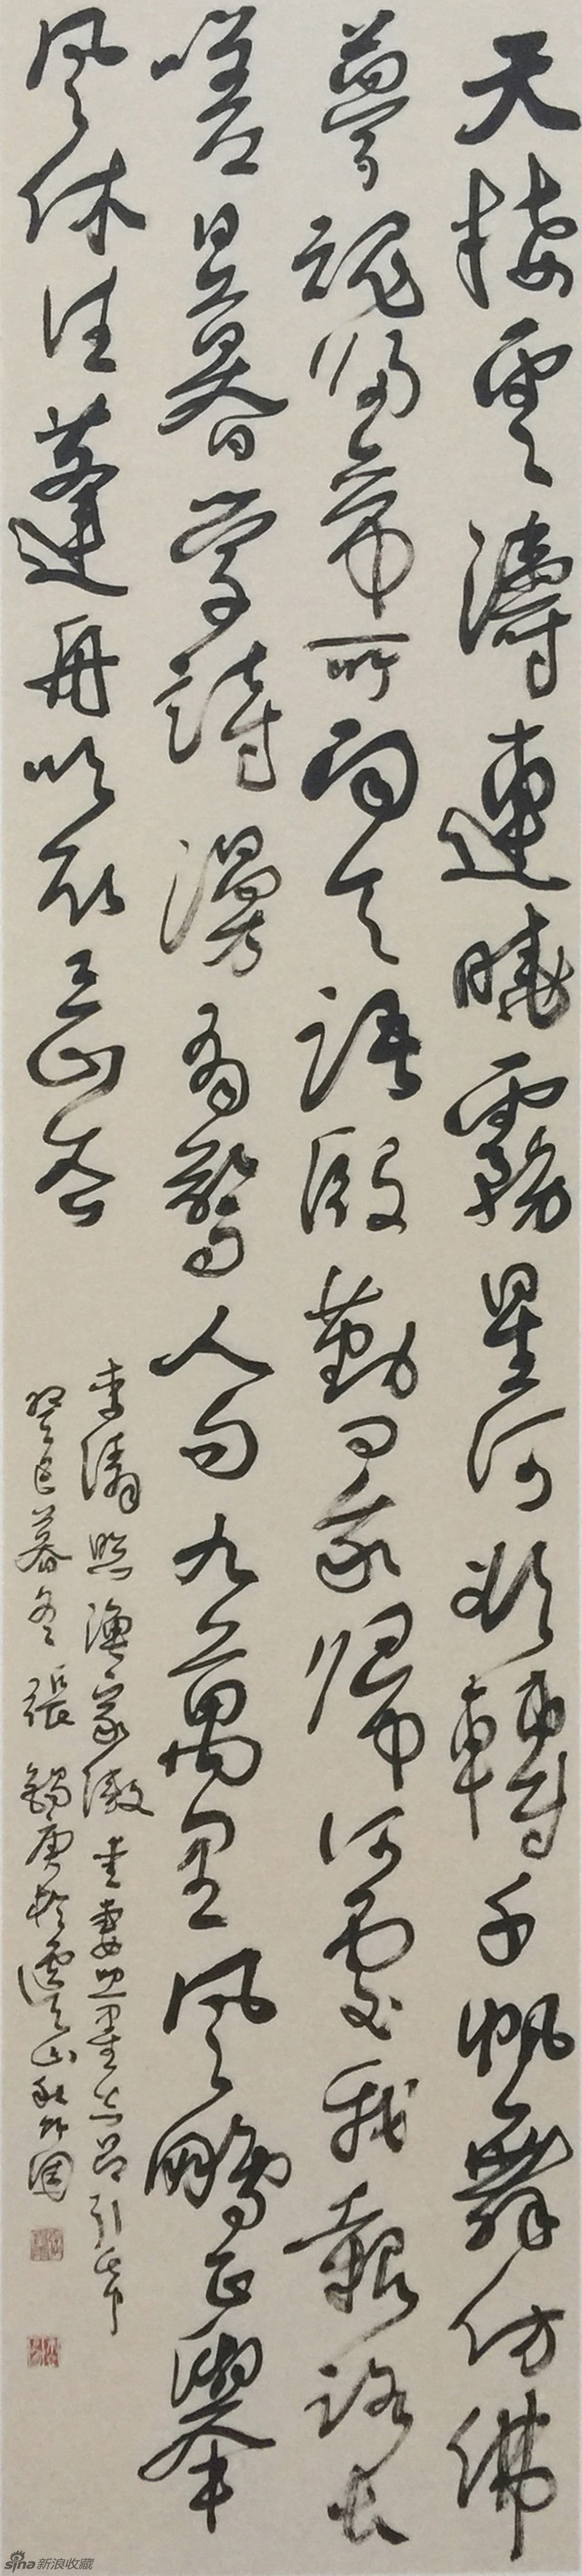 天接雲濤連曉霧星河欲轉千帆舞仿佛
夢魂歸帝所聞天語殷勤問我歸何處我報路長
嗟日暮學詩漫有驚人句九萬里風鵬正舉
風休住蓬舟吹取三山去
李清照漁家傲
癸巳暮冬張錫庚於
sina新浪收藏